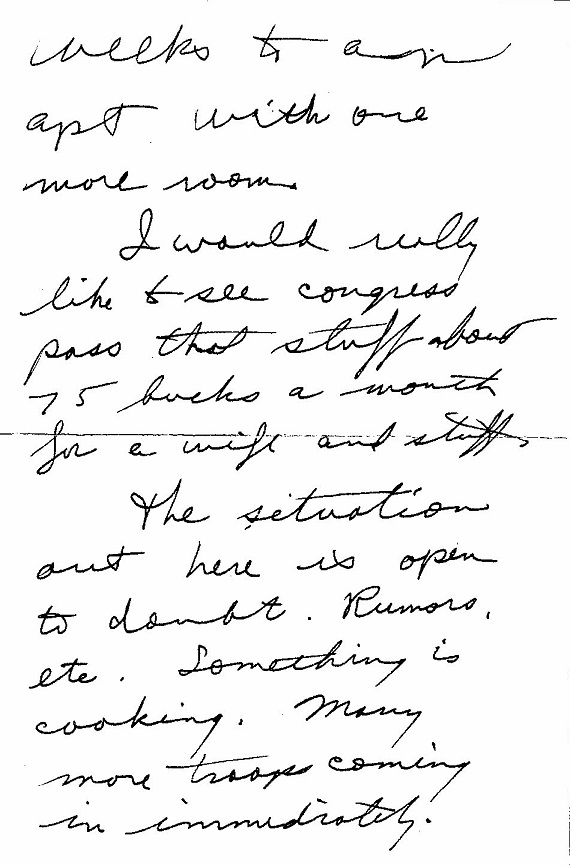 weeks to an
apt with one
more room.
I would really
like to see congress
pass that stuff about
75 bucks a month
for a wife and stuff.
The situation
out here is open
to doubt. Rumors,
etc. Something is
cooking. Many
more troops coming
in immediately.